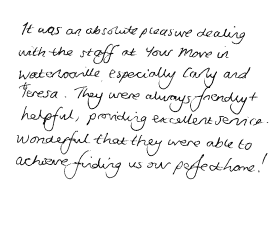 It was an absolute pleasure dealing
with the staff at Your Move in
Waterlooville especially Carly and
Teresa. They were always friendly +
helpful, providing excellent service.
wonderful that they were able to
achieve finding us our perfect home!